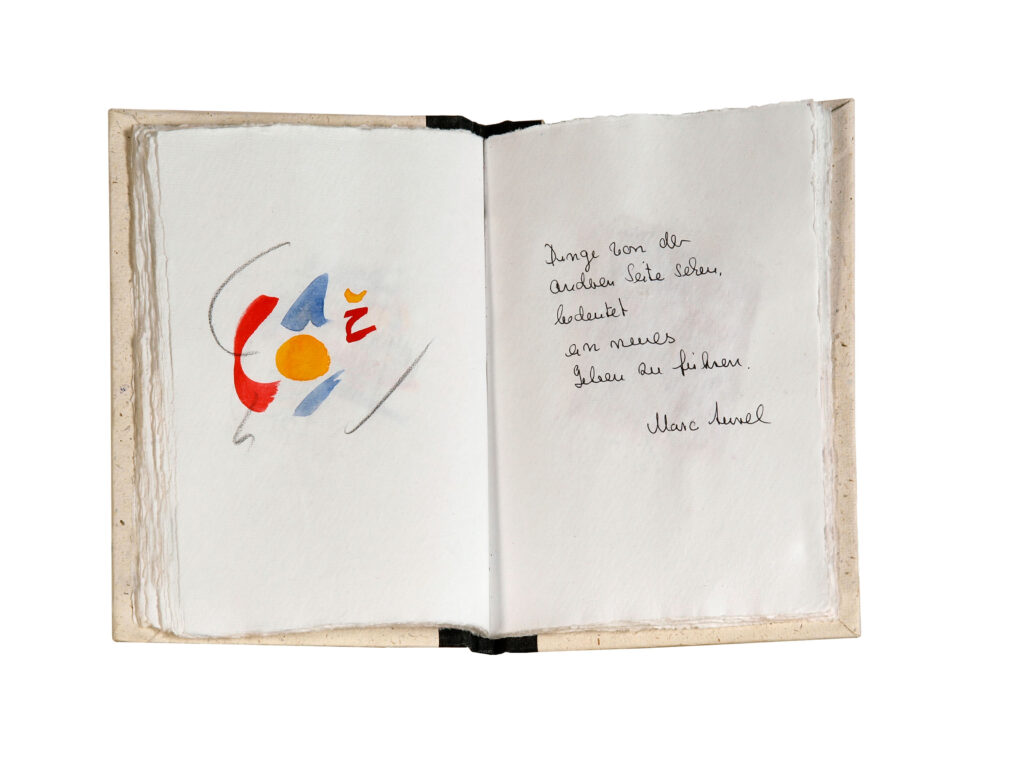 Dinge von der
andren Seite sehen,
bedeutet
ein neues
Leben zu führen.
Marc Aurel